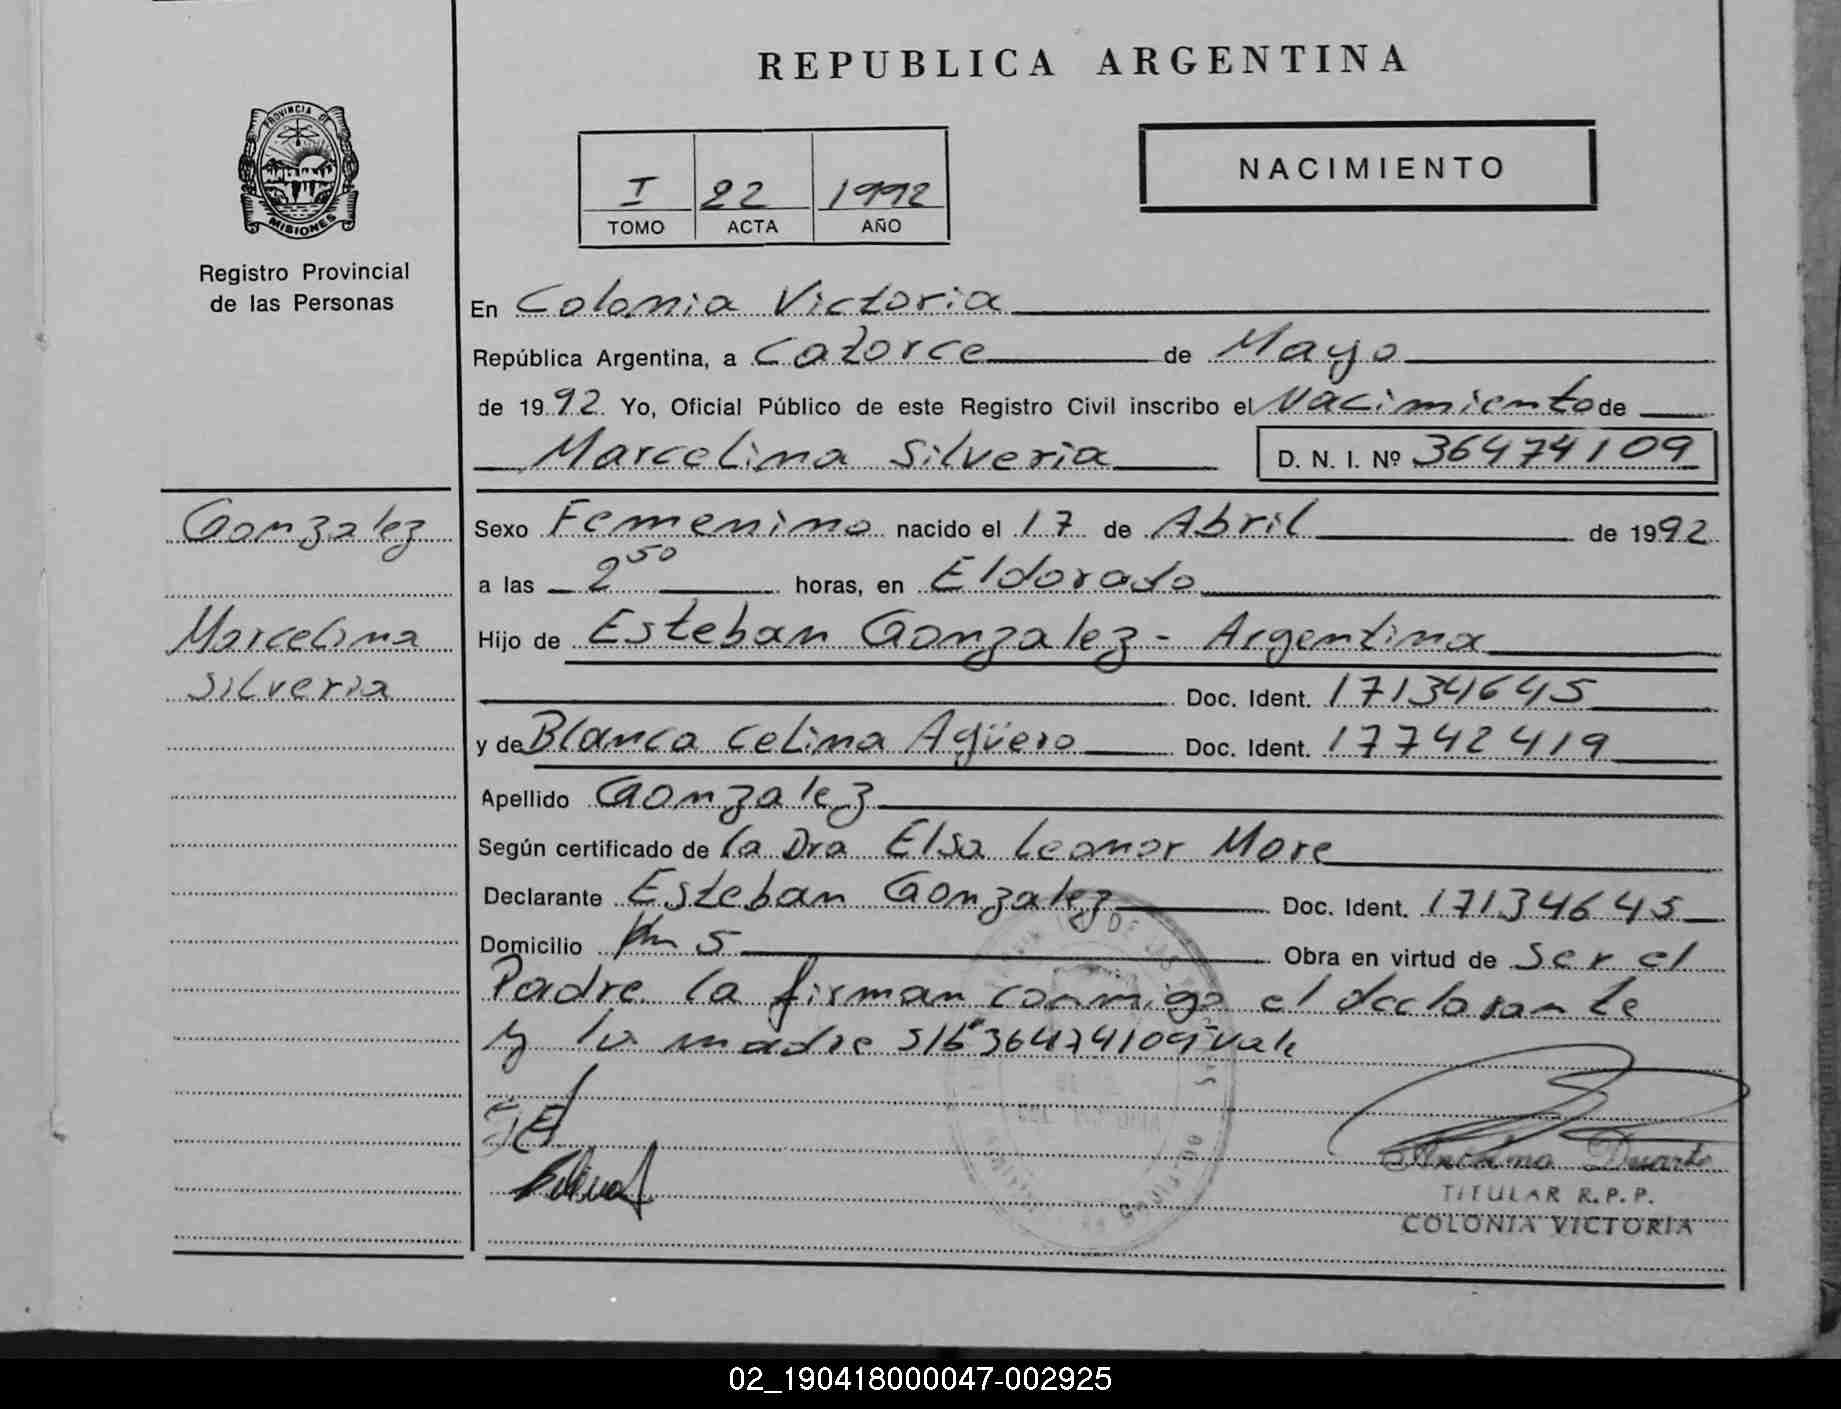 REPUBLICA ARGENTINA
PROVINCIA DE
MISIONES
Registro Provincial
de las Personas
I 22 1992
TOMO ACTA AÑO
NACIMIENTO
En Colonia Victoria
República Argentina, a Catorce de Mayo
de 1992. Yo, Oficial Público de este Registro Civil inscribo el Nacimiento de
Marcelina Silveria D. N. I. Nº 36474109
Gonzalez
Marcelina
Silveria
Sexo Femenino nacido el 17 de Abril de 1992
a las 2 50 horas, en Eldorado
Hijo de Esteban Gonzalez - Argentina
Doc. Ident. 17134645
y de Blanca Celina Agüero Doc. Ident. 17742419
Apellido Gonzalez
Según certificado de la Dra Elsa Leonor More
Declarante Esteban Gonzalez Doc. Ident. 17134645
Domicilio Km 5 Obra en virtud de Ser el
Padre la firman conmigo el declarante
y la madre S/b "36474109" vale
Anselmo Duarte
TITULAR R.P.P.
COLONIA VICTORIA
02_190418000047-002925